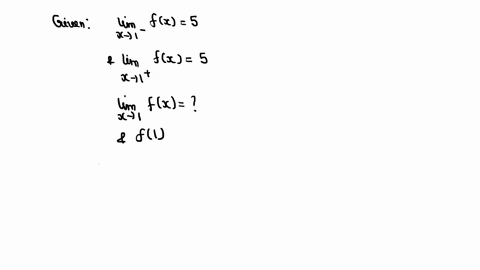 Given: lim x→1⁻ f(x) = 5
& lim x→1⁺ f(x) = 5
lim x→1 f(x) = ?
& f(1)